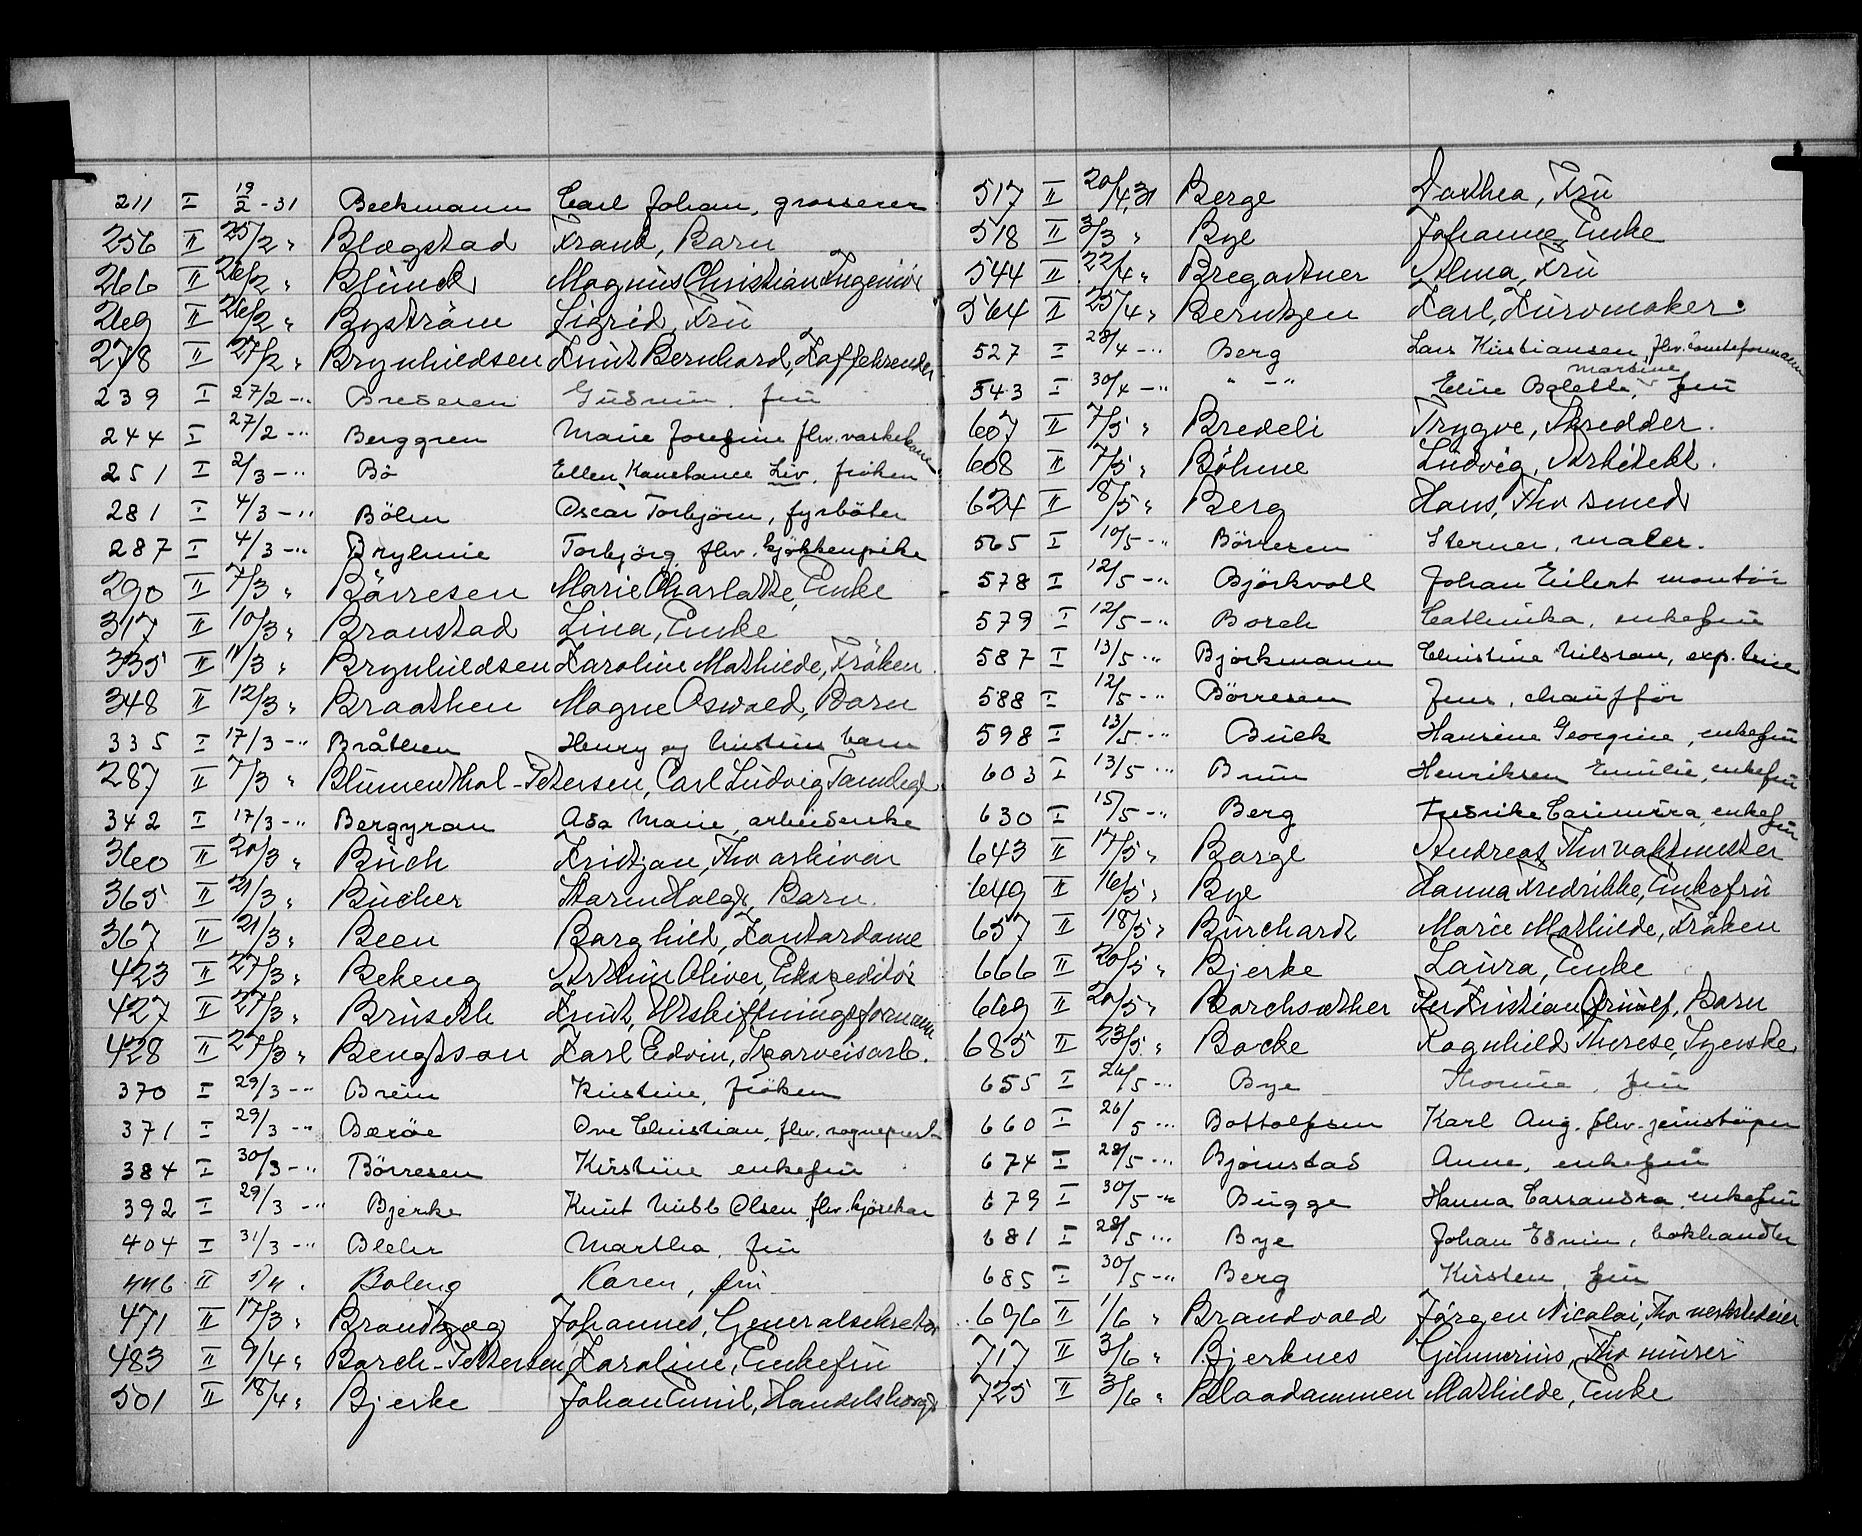 211 I 19/2 - 31 Beckmann Carl Johan, grosserer
256 II 25/2 " Blegstad Frank, Barn
266 II 26/2 " Blunck Magnus Christian Ingeniør
269 II 26/2 " Byström Sigrid, Fru
278 II 27/2 " Brynhildsen Knut Bernhard, Kaffebrender
239 I 27/2 -" Bresesen Gudrun, fru
244 I 27/2 -" Berggren Marie Josefine flv. vaskekone
251 I 2/3 -" Bö Ellen Konstance Liv, fröken
281 I 4/3 -" Bölen Oscar Torbjörn, fyrböter
287 I 4/3 -" Brylinie Torbjörg, flv. kjökkenpike
290 II 7/3 " Börresen Marie Charlotte, Enke
317 II 10/3 " Bronstad Lina, Enke
335 II 11/3 " Brynhildsen Karoline Mathilde, Fröken.
348 II 12/3 " Braathen Magne Oswald, Barn
335 I 17/3 -" Bråthen Henry og Kristines barn
287 II 7/3 " Blumenthal-Petersen, Carl Ludvig Tannlege
342 I 17/3 -" Bergyran Asa Marie, arbeiderske
360 II 20/3 " Buch Kristjan, Fhv arkivar
365 II 21/3 " Bucher Barn.
367 II 21/3 " Been Borghild, Kontordame
423 II 27/3 " Bekeng Arthur Oliver, Ekspeditör
427 II 27/3 " Bruseth Knut, Utskiftningsformann
428 II 27/3 " Bengtson Karl Edvin, Tråarveisarb.
370 I 29/3 -" Brein Kristine, fröken
371 I 29/3 -" Bærøe Ove Christian, flv. sogneprest
384 I 30/3 -" Börresen Kirstine enkefru
392 I 29/3 -" Bjerke Knut Nubb Olsen flv. kjörekar
404 I 31/3 -" Blehr Martha, fru
446 II 5/4 " Boleng Karen, fru
471 II 17/3 " Brandtzæg Johannes, Generalsekretær
483 II 9/4 " Borch-Pettersen, Karoline, Enkefru
501 II 18/4 " Bjerke Johan Emil, Handelsborger
517 II 20/4 31 Berge Dorthea, Fru
518 II 3/3 " Bye Johanne, Enke
544 II 22/4 " Bregartner Alma, Fru
564 II 25/4 " Berntzen Karl, Kurvmaker.
527 I 28/4 -" Berg Lars Kristiansen, flv. tomteformann
543 I 30/4 -" " -" Eline Bolette, Martine fru
607 II 7/5 " Bredeli Trygve, Skredder.
608 II 7/5 " Böhme Ludvig, Arkitekt.
624 II 8/5 " Berg Hans, Fhv smed
565 I 10/5 -" Börresen Sterner, maler.
578 I 12/5 -" Björkvoll Johan Eilert montör
579 I 12/5 -" Borch Cathinka, enkefru
587 I 13/5 -" Björkmann Christine Nilsson, exp.trise
588 I 12/5 -" Börresen Jens, chaufför
598 I 13/5 -" Buck Hansine Georgine, enkefru
603 I 13/5 -" Brun Henriksen Emilie, enkefru
630 I 15/5 -" Berg Fredrike Casimira, enkefru
643 II 17/5 " Borge Andreas, Fhv vaktmester
649 II 16/5 " Bye Hanna Fredrikke, Enkefru
657 II 18/5 " Burchardt Marie Mathilde, Fröken
666 II 20/5 " Bjerke Laura, Enke
669 II 20/5 " Borchsæther Per Kristian Brunolf, Barn
685 II 23/5 " Bocke Ragnhild Therese, Syerske
655 I 26/5 -" Bye Thomine, fru
660 I 26/5 -" Bottolfsen Karl Aug. flv. jernstöper
674 I 28/5 -" Bjørnstad Anne, enkefru
679 I 30/5 -" Bugge Hanna Cassandra, enkefru
681 I 28/5 -" Bye Johan Edvin, bokhandler
685 I 30/5 -" Berg Kirsten, fru
696 II 1/6 " Brandvold Jørgen Nicolai, Fhv verkstedeier
717 II 3/6 " Bjerknes Gunnerius, Fhv murer
725 II 3/6 " Blaadammen Mathilde, Enke